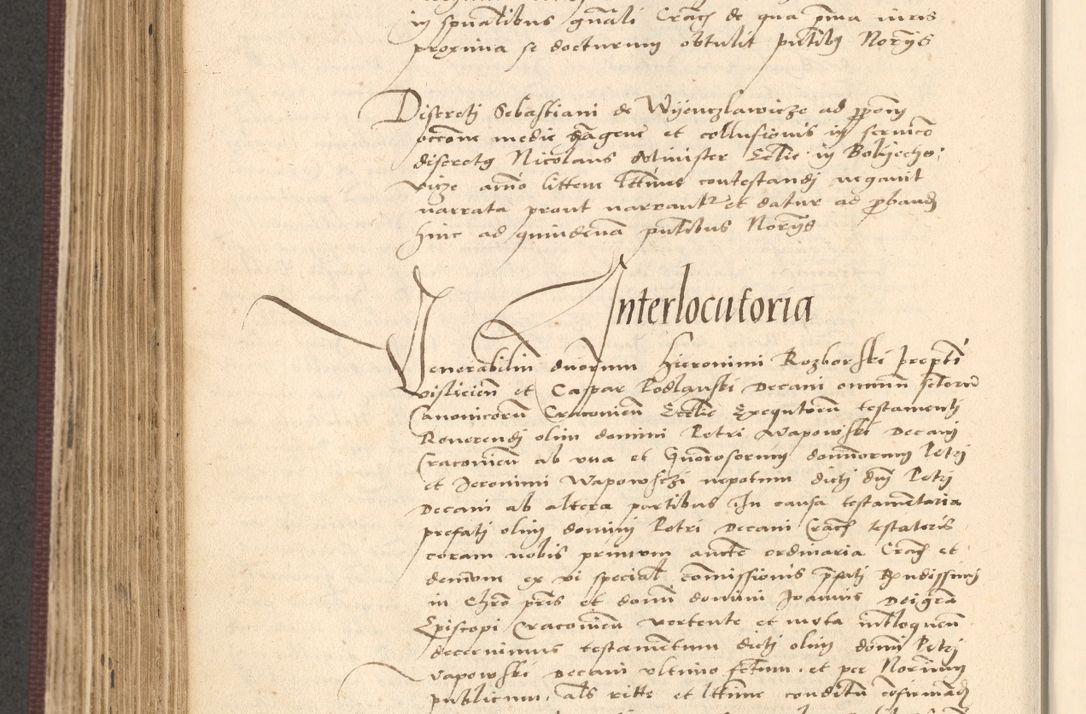 in spualibus gnali Cracz de qua pma iuris
proxima se docturum obtulit putibq Norys
Discreti Sebastiani de Wyenczlawicze ad pponem
occone medie et collusionis in servico
discretq Nicolaus dominister Ecclie in
anno littem lttime contestandi negavit
narrata prout narrantr et datur ad pband
hinc ad quindenā putibus Norys
Interlocutoria
Venerabiliū duorum Hieronimi Rozborski prepti
visliciēn et Caspar Podlguski Decani omniū sctorū
Canonicorū Cracoviēn Ecclie Exequutorū testamenti
Reverendi olim domini Petri Wapowski Decani
Cracoviēn ab una et Gnorosorum domnorum Petri
et Jeronimi Wapowsczi nepotum dicti dni Petri
Decani ab altera partibus In causa testamētaria
prefati olim domini Petri Decani Cracz testatoris
coram nobis primum aucte ordinaria Cracz et
demum ex vi special commissionis pfati Rndissimi
in Chro pris et domi domini Joannis Dei gra
Episcopi Cracoviēn vertente et mota intloquēn
decernimus testamentum dicti olim domi Petri
Vapowski Decani ultimo fctum et per Norium
publicum als ritte et lttime conditū confirmad